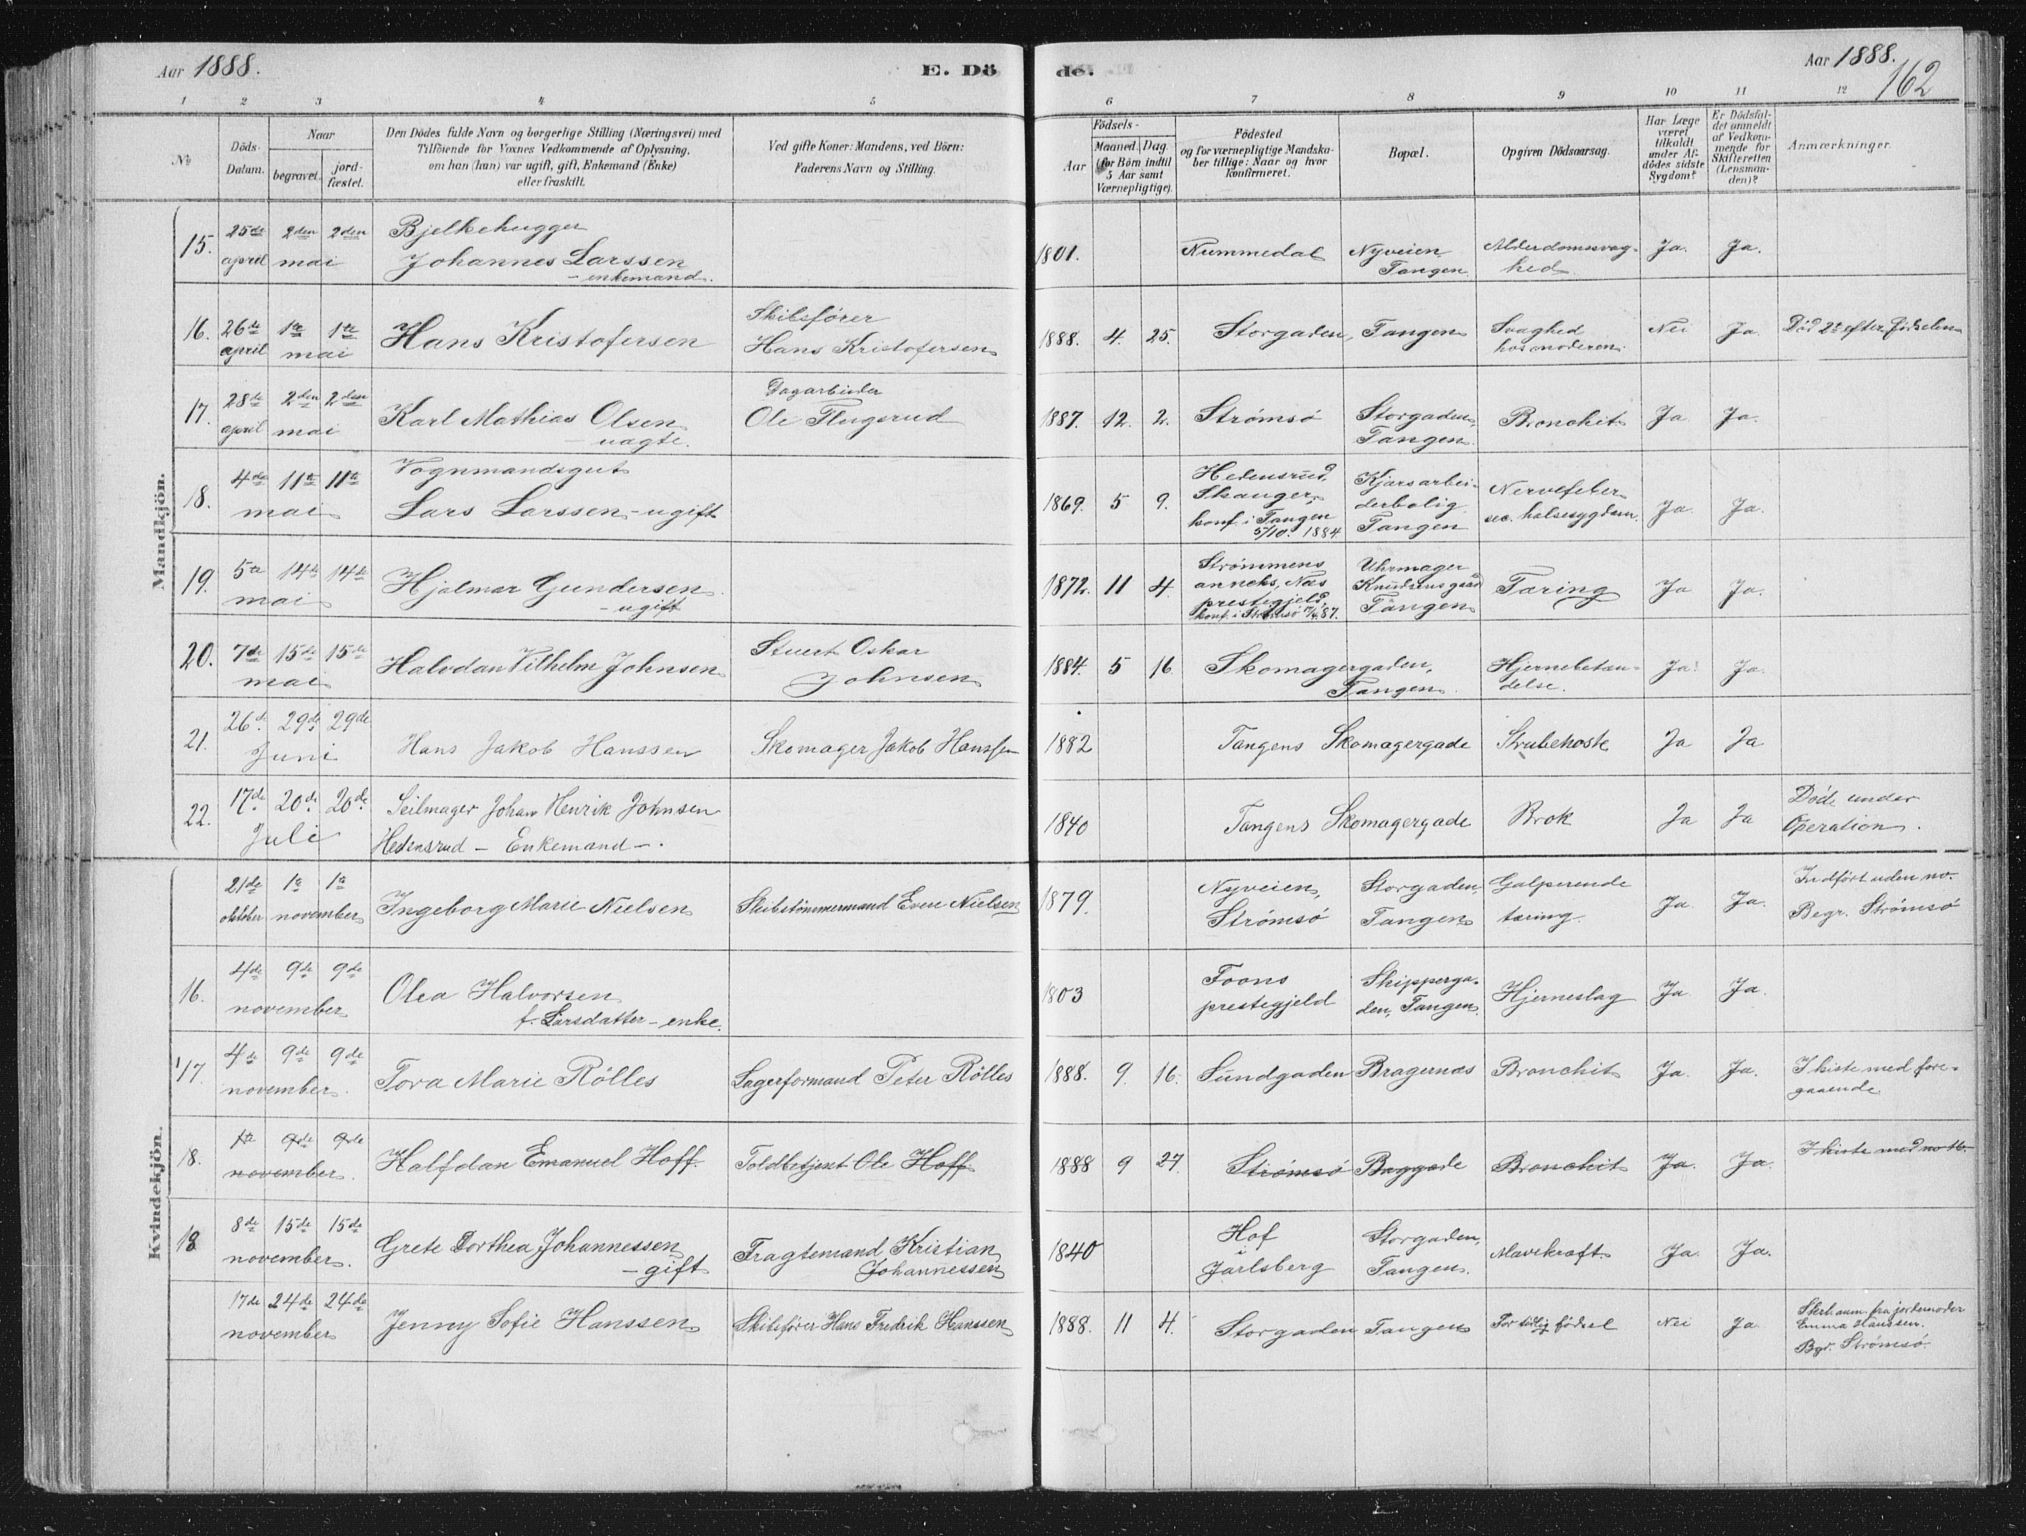 Aar 1888. E. Dö de. Aar 1888.
162
1 2 3 4 5 6 7 8 9 10 11 12
No
Döds-Datum.
Naar
begravet.
jord-fæstet.
Den Dödes fulde Navn og borgerlige Stilling (Næringsvei) med
Tilföiende for Voxnes Vedkommende af Oplysning,
om han (hun) var ugift, gift, Enkemand (Enke)
eller fraskilt.
Ved gifte Koner: Mandens, ved Börn:
Faderens Navn og Stilling.
Födsels-
Aar
Maaned. Dag.
(for Börn indtil
5 Aar samt
Værnepligtige).
Födested
og for værnepligtige Mandska-
ber tillige: Naar og hvor
konfirmeret.
Bopæl.
Opgiven Dödsaarsag.
Har Læge
været
tilkaldt
under Af-
dödes sidste
Sygdom?
Er Dödsfal-
det anmeldt
af Vedkom-
mende for
Skifteretten
(Lensman-
den)?
Anmærkninger.
Mandkjön.
15. 25de april 2den 2den mai Bjelkehugger
Johannes Larssen
- enkemand.
1801. Nummedal Nyveien Tangen Alderdomssvag-
hed Ja. Ja.
16. 26de april 1te 1te mai Hans Kristofersen Skibsfører
Hans Kristofersen
1888. 4. 25. Storgaden, Tangen Svaghed
hos moderen. Nei Ja. Død 2t efter fødselen
17. 28de april 2den 2den mai Karl Mathias Olsen
- uægte. Dagarbeider
Ole Flugsrud
1887. 12. 2. Strømsø Storgaden,
Tangen. Bronchit Ja Ja.
18. 4de 11te 11te mai Vognmandsgut
Lars Larssen - ugift
1869. 5 9. Hedensrud,
Skanger,
konf. i Tangen
5/10. 1884 Kjørsarbei-
derbolig
Tangen Nervefeber
sec. halsesygdom. Ja. Ja.
19. 5te 14de 14de mai Hjalmar Gundersen
- ugift
1872. 11 4. Strømmens
anneks, Næs
prestegjeld
konf. i Strømsø 87. Uhrmager
Knudsens gaard
Tangen Tæring Ja Ja.
20. 7de 15de 15de mai Halvdan Vilhelm Johnsen Stuert Oskar
Johnsen
1884. 5 16. Skomagergaden,
Tangen. Hjernebetæn-
delse. Ja. Ja.
21. 26de 29de 29de Juni Hans Jakob Hanssen Skomager Jakob Hanssen
1882 Tangens Skomagergade Strubehoste Ja Ja
22. 17de 20de 20de Juli Seilmager Johan Henrik Johnsen
Hedensrud - Enkemand -.
1840 Tangens Skomagergade Brok Ja Ja Døde under
Operation.
Kvindekjön.
21de oktober 1te 1te november Ingeborg Marie Nielsen Skibstømmermand Even Nielsen
1879. Nyveien,
Strømsø Storgaden,
Tangen Galperende
tæring. Ja. Ja. Indført uden no.
Begr. Strømsø
16. 4de 9de 9de november Olea Halvorsen
f. Larsdatter - enke.
1803 Foons
prestegjeld Skipperga-
den, Tangen. Hjerneslag Ja Ja.
17. 4de 9de 9de november. Tora Marie Rölles Lagerformand Peter Rölles
1888. 9. 16. Sundgaden Bragernæs Bronchit Ja. Ja. I kiste med fore-
gaaende
18. 1te 9de 9de november. Halfdan Emanuel Hoff. Toldbetjent Ole Hoff
1888 9 27. Strømsø Baggade Bronchit Ja. Ja. I kiste med no 16.
18 8de 15de 15de november. Grete Dorthea Johannessen
- gift Fragtemand Kristian
Johannessen
1840 Hof
i
Jarlsberg Storgaden,
Tangen. Mavekræft Ja. Ja.
17de 24de 24de november Jenny Sofie Hanssen Skibsfører Hans Fredrik Hanssen
1888. 11 4. Storgaden Tangen For tidlig fødsel Nei Ja. Skrf. anm. fra jordemoder
Emma Hanssen.
Bgr. Strømsø